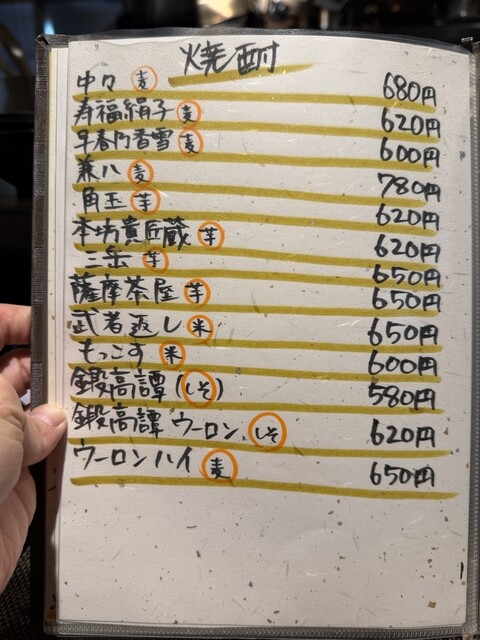 焼酎
中々 麦 680円
寿福絹子 麦 620円
早春月香雪 麦 600円
兼八 麦 780円
角玉 芋 620円
本坊貴匠蔵 芋 620円
三岳 芋 650円
薩摩茶屋 芋 650円
武者返し 米 650円
もっこす 米 600円
鍛高譚 (しそ) 580円
鍛高譚 ウーロン しそ 620円
ウーロンハイ 麦 650円